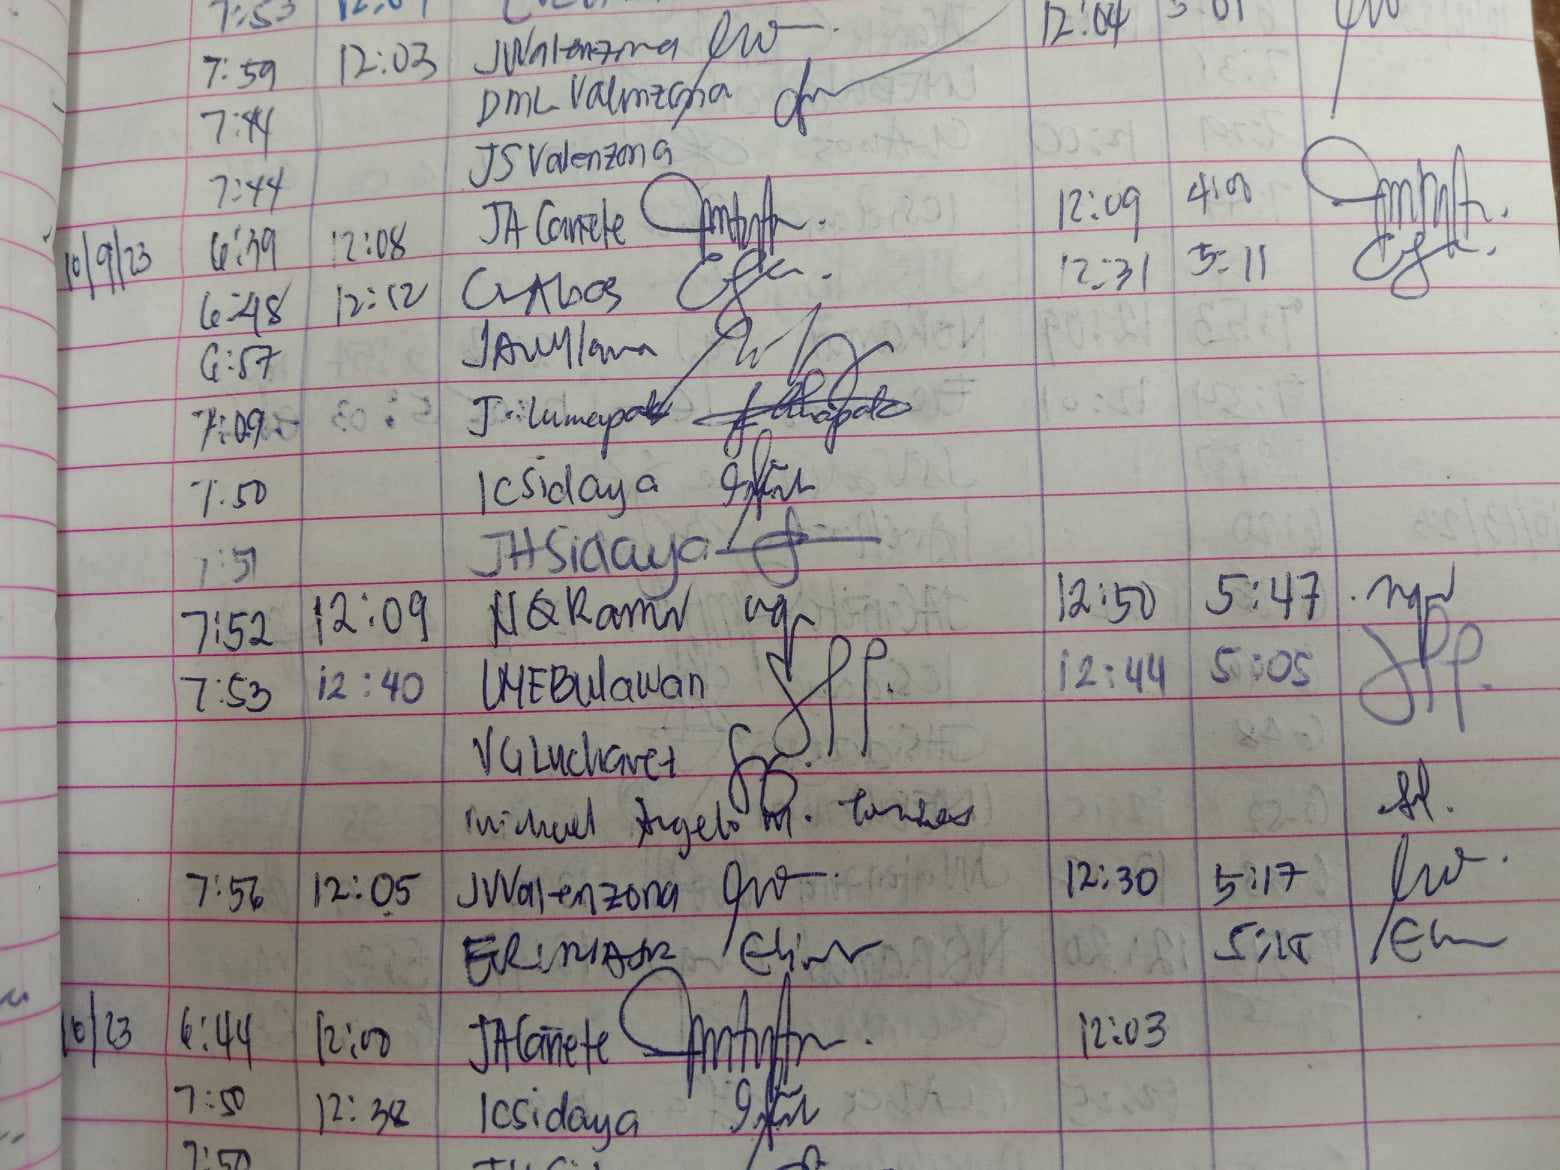 7:53
7:59 12:03 JVValenzona 12:04 5:01
7:44 DML Valenzona
7:44 JS Valenzona
10/9/23 6:39 12:08 JA Cañete 12:09 4:00
6:48 12:12 Abos 12:31 5:11
6:57
7:09 J. Lumapat
7:50 ICSidaya
7:51 JHSidaya
7:52 12:09 NQRamir 12:50 5:47
7:53 12:40 LMEBulawan 12:44 5:05
VGLuchavez
Michael Angelo M.
7:56 12:05 JVValenzona 12:30 5:17
5:15
10/23 6:44 12:00 JACañete 12:03
7:50 12:38 ICSidaya
7:50